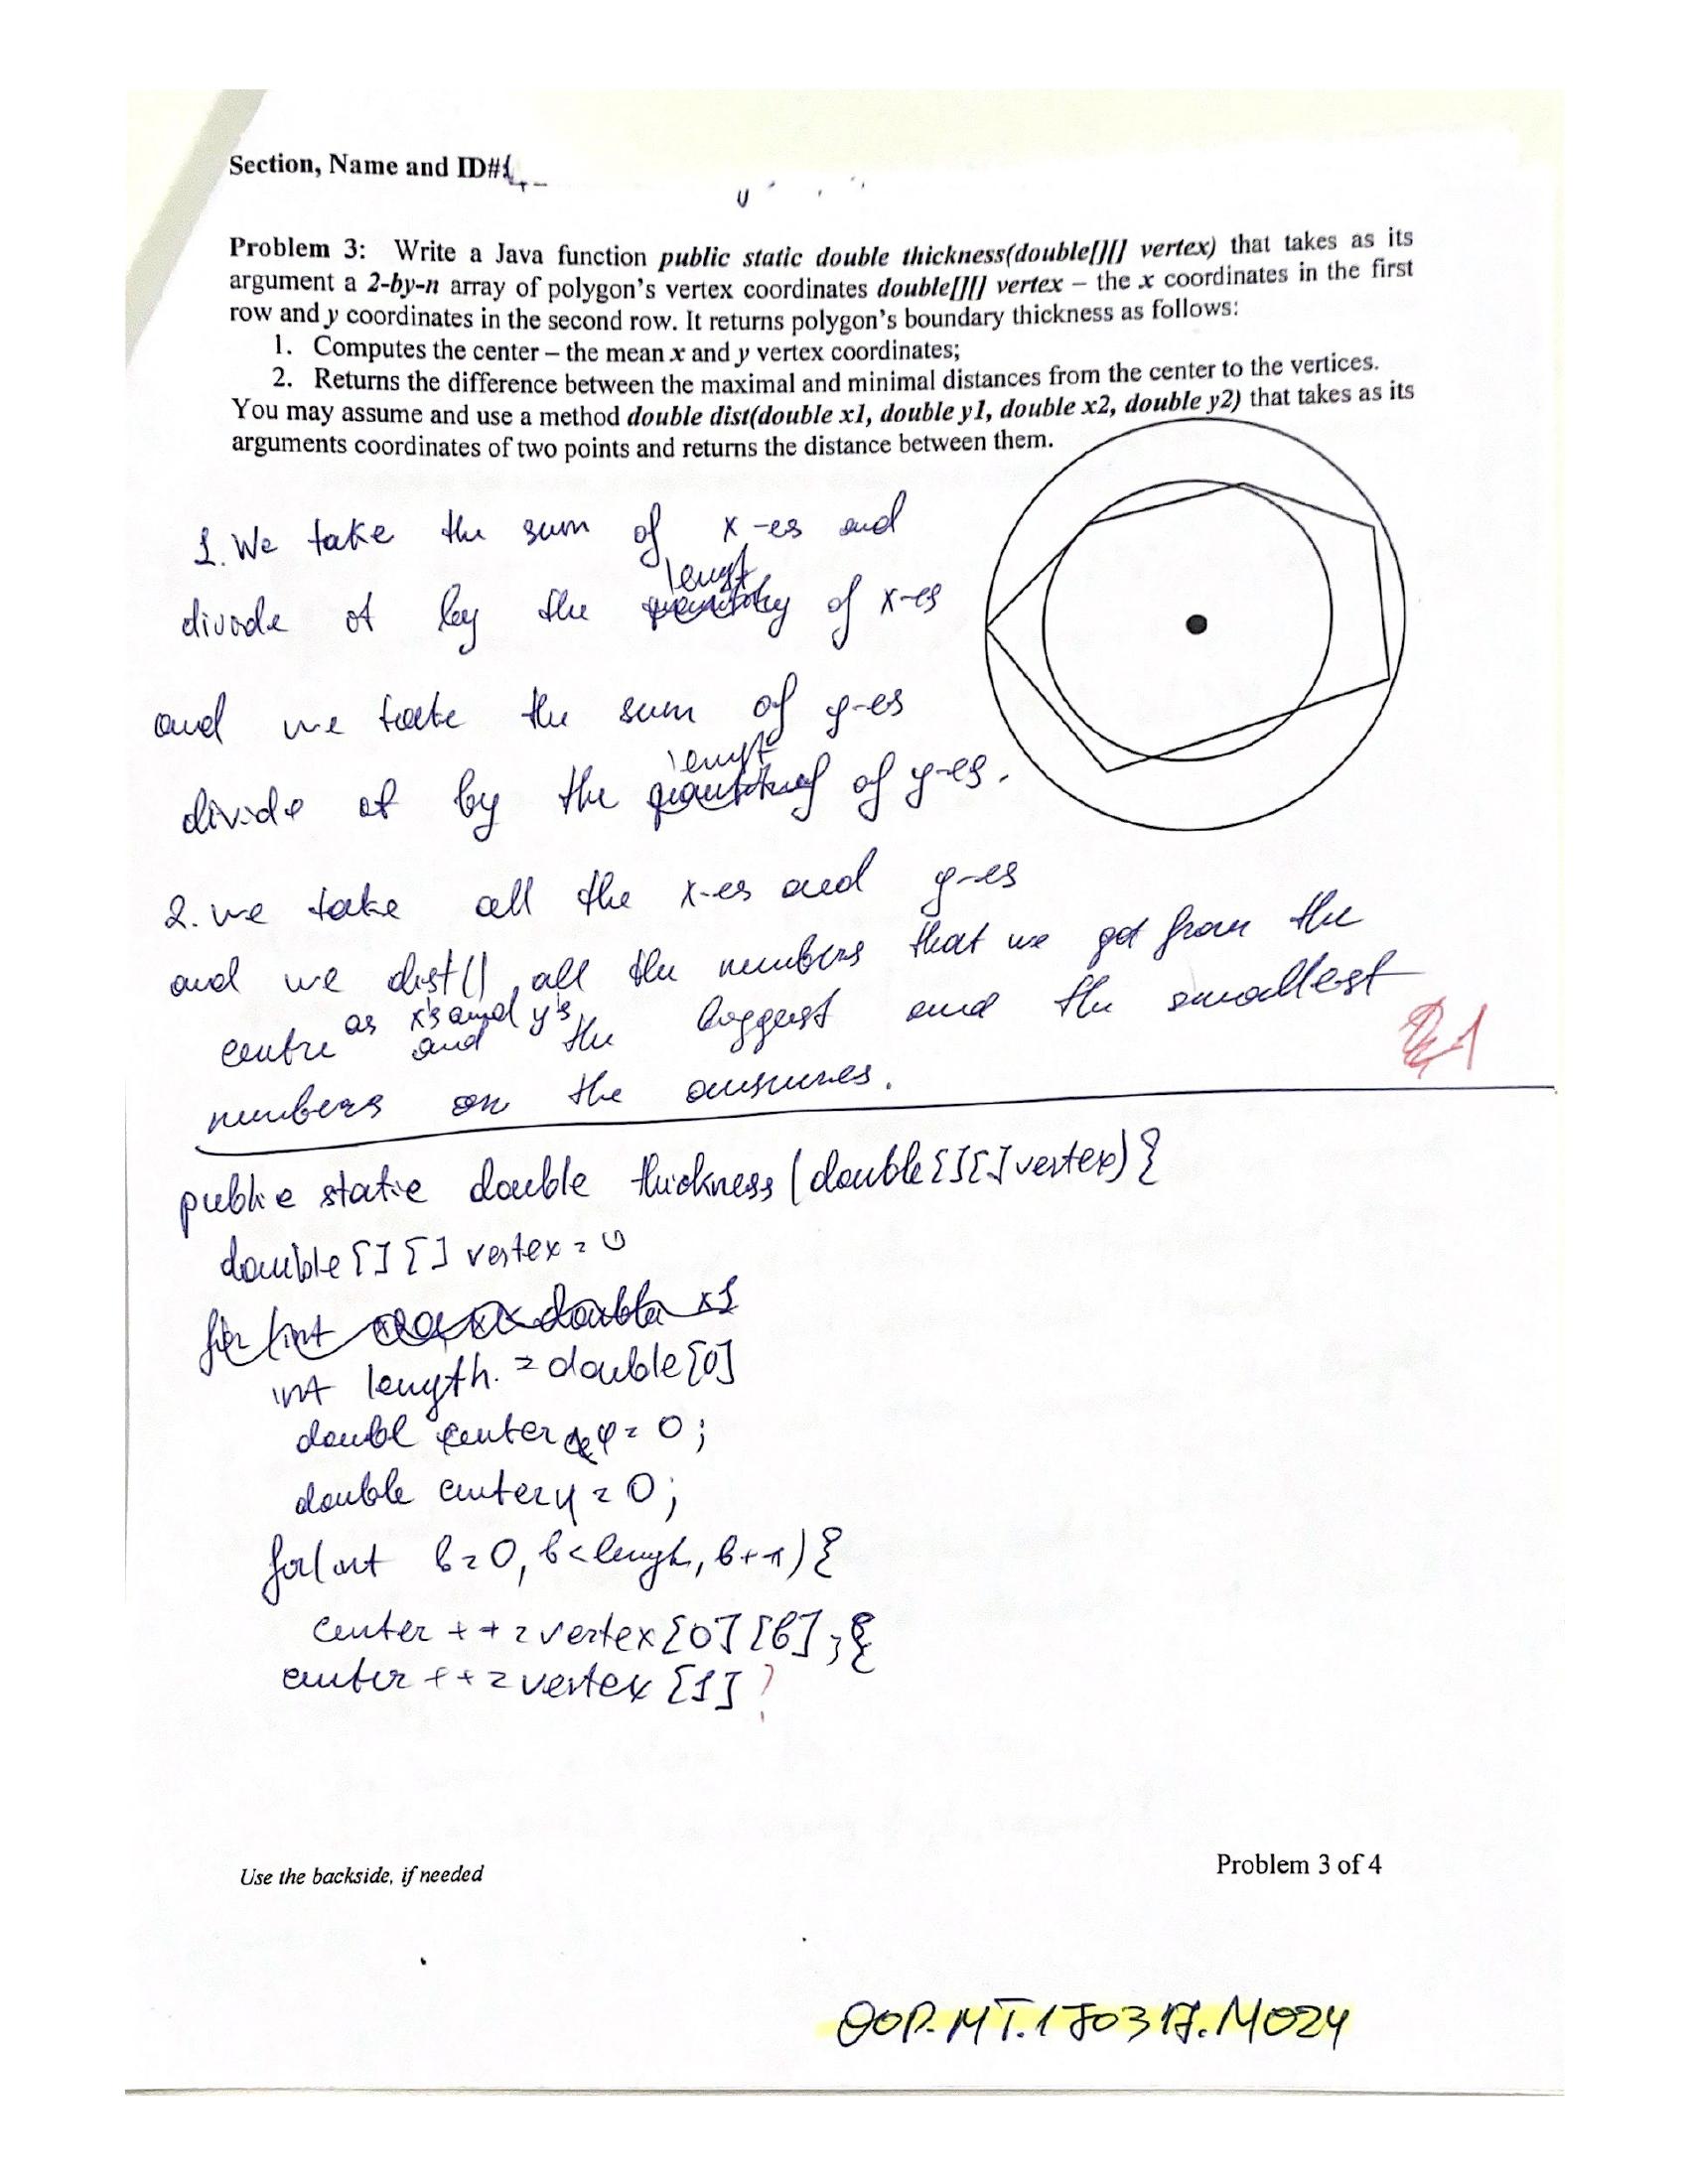 Section, Name and ID#
Problem 3: Write a Java function public static double thickness(double[][] vertex) that takes as its
argument a 2-by-n array of polygon's vertex coordinates double[][] vertex – the x coordinates in the first
row and y coordinates in the second row. It returns polygon's boundary thickness as follows:
1. Computes the center – the mean x and y vertex coordinates;
2. Returns the difference between the maximal and minimal distances from the center to the vertices.
You may assume and use a method double dist(double x1, double y1, double x2, double y2) that takes as its
arguments coordinates of two points and returns the distance between them.
1. We take the sum of x-es and
lengt
divide it by the quantity of x-es
and we take the sum of y-es
lengt
divide it by the quantity of y-es.
2. we take all the x-es and y-es
and we dist() all the numbers that we got from the
as x's and y's
centre and the biggest and the smallest
numbers on the
1
public static double thickness (double[][] vertex) {
double [] [] vertex = 0
for (int double x1
int length. = double [0]
doubl center = 0;
double center y = 0;
for(int b=0, b<lengh, b++) {
center ++ = vertex [0] [b]; {
center ++ = vertex [1] ?
Use the backside, if needed
Problem 3 of 4
OOP.MT.170317.M024